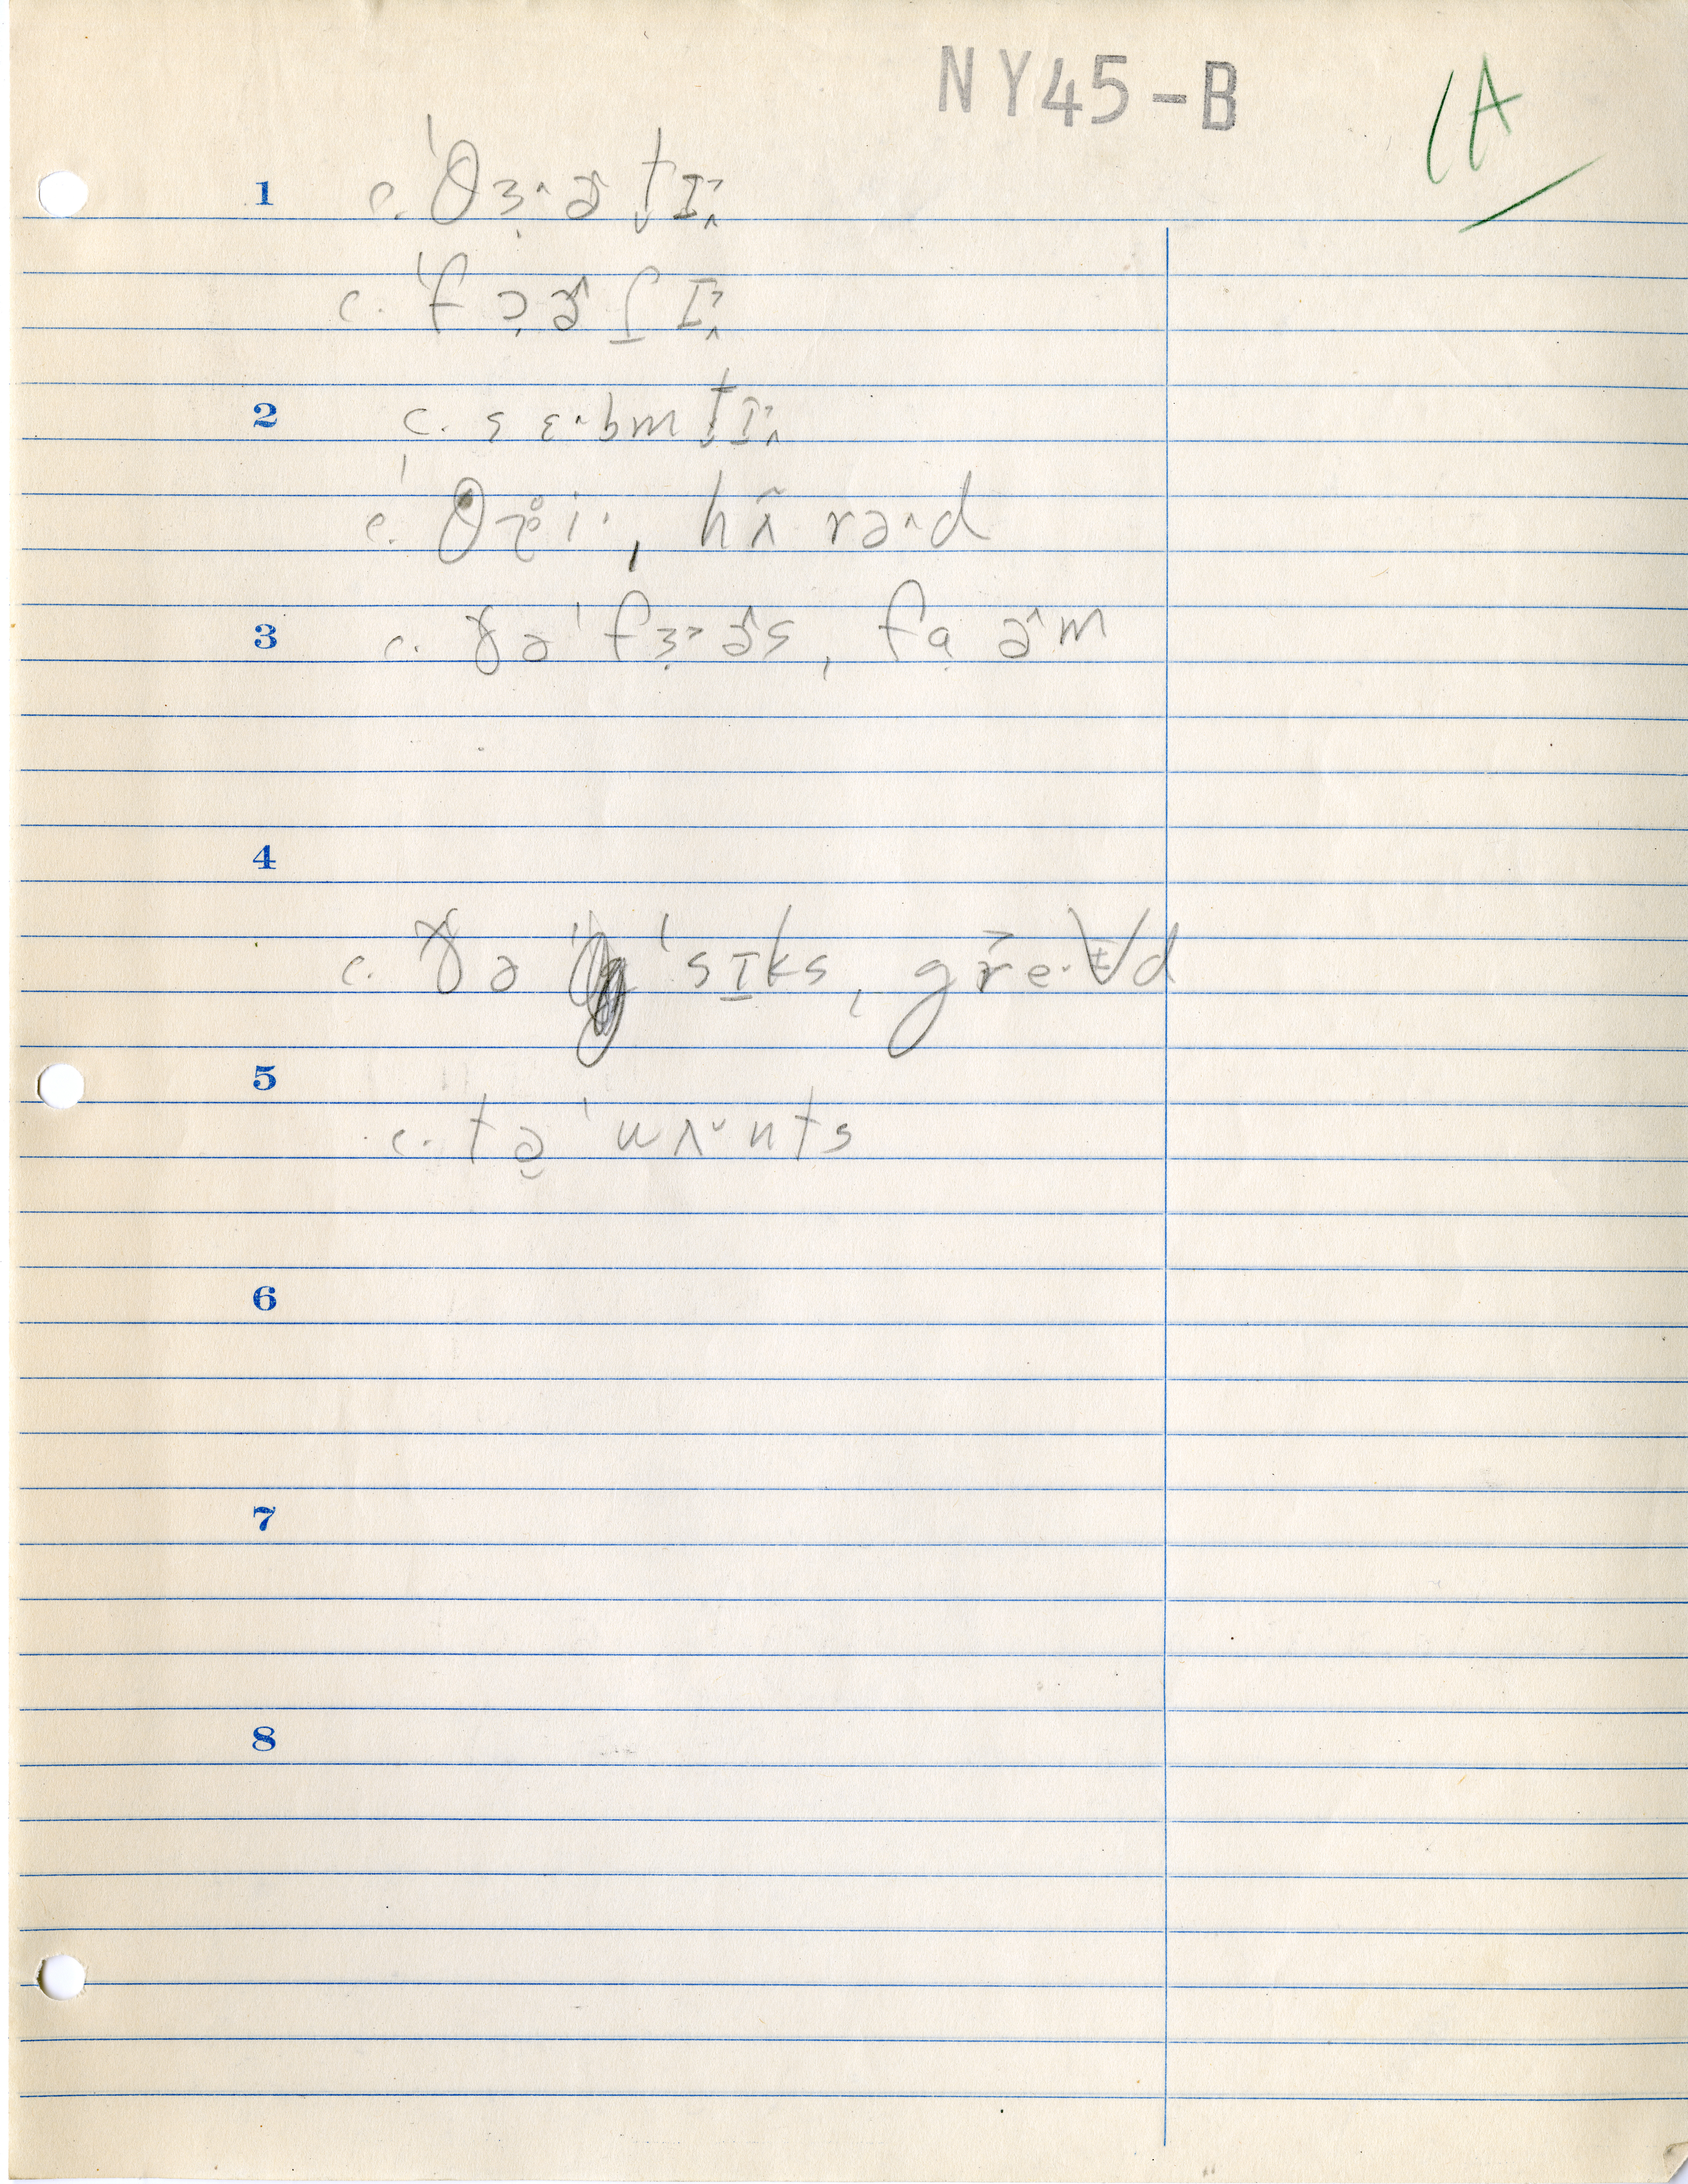 NY45-B
1A
1 c. ˈθɜ˔ɚtɪ
c. ˈfɔɚʃɪ
2 c. sɛ·bmtɪ
c. ˈθr̥i·, hʌ̃rə˄d
3 c. ɣəˈfɜ˃ɚs, fɑɚm
4
c. ɣə ˈsɪks, gre·ɨd
5
c. təˈwʌ˅nts
6
7
8